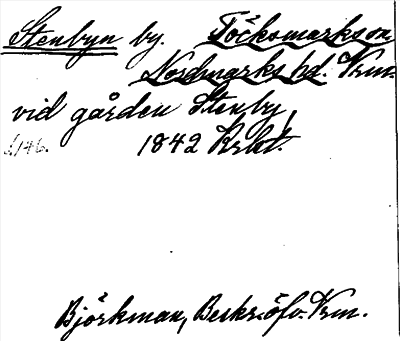 Stenbyn by. Töcksmarks sn
Nordmarks hd. Vrm.
vid gården Stenby
s. 146. 1842 Krbt.
Björkman, Beskr. öfv. Vrm.